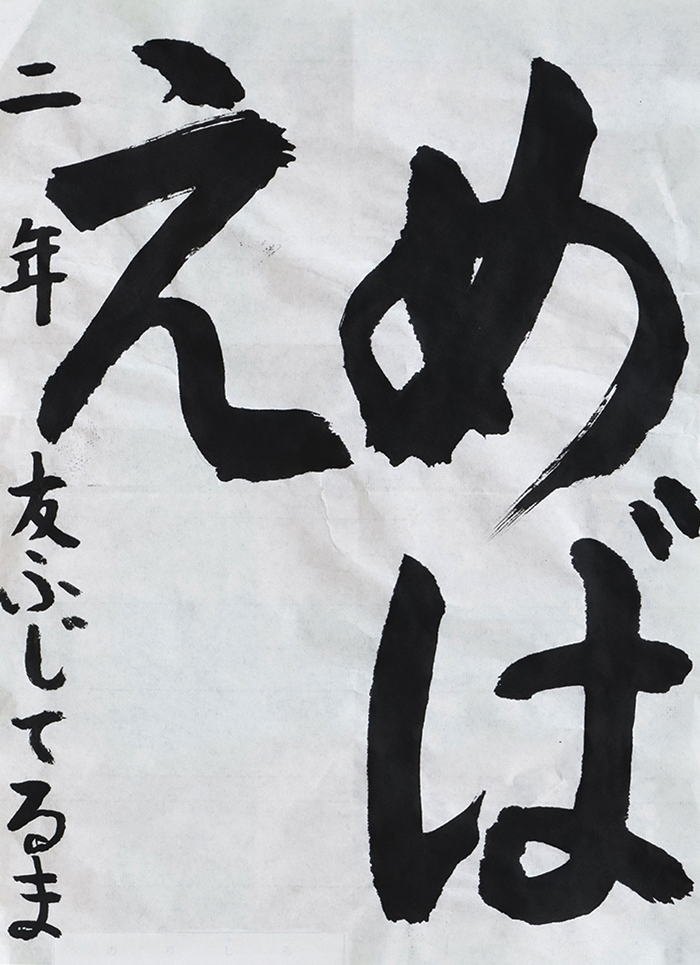 めば
え
二年 友ふじてるま